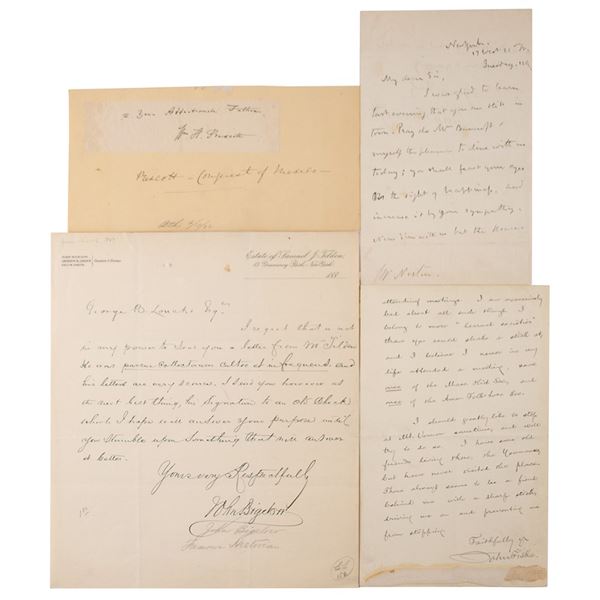 Your Affectionate Father
Wm H. Prescott
Prescott - Conquest of Mexico -
New York.
17 West 21st St.
Tuesday
My dear Sir,
I was glad to learn
last evening that you are still in
town. Pray do Mr Bancroft &
myself the pleasure to dine with us
today; you shall feast your eyes
on the sight of happiness, and
increase it by your sympathy.
but the House.
Estate of Samuel J. Tilden,
15 Gramercy Park, New York
188
George
Esqre
I regret that it is not
in my power to give you a letter from Mr Tilden
He was parcus
cultor et infrequens, and
his letters are very scarce. I send you however as
the next best thing, his signature to an old check
which I hope will answer your purpose until
you stumble upon something that will answer
it better.
Yours very Respectfully
John Bigelow
John Bigelow
Famous Historian
attending meetings. I am excessively
busy about all and though I
belong to more "learned societies"
than you could shake a stick at,
and I believe I never in my
life attended a meeting, save
one of the Mass Hist Soc, and
one of the Amer Folk Lore Soc.
I should greatly like to stop
at Mt. Vernon sometime, and will
try to do so. I have some old
friends living there, the
but have never visited the place.
There always seems to be a fiend
behind me with a sharp stick,
driving me on and preventing me
from stopping.
Faithfully yrs
John Fiske